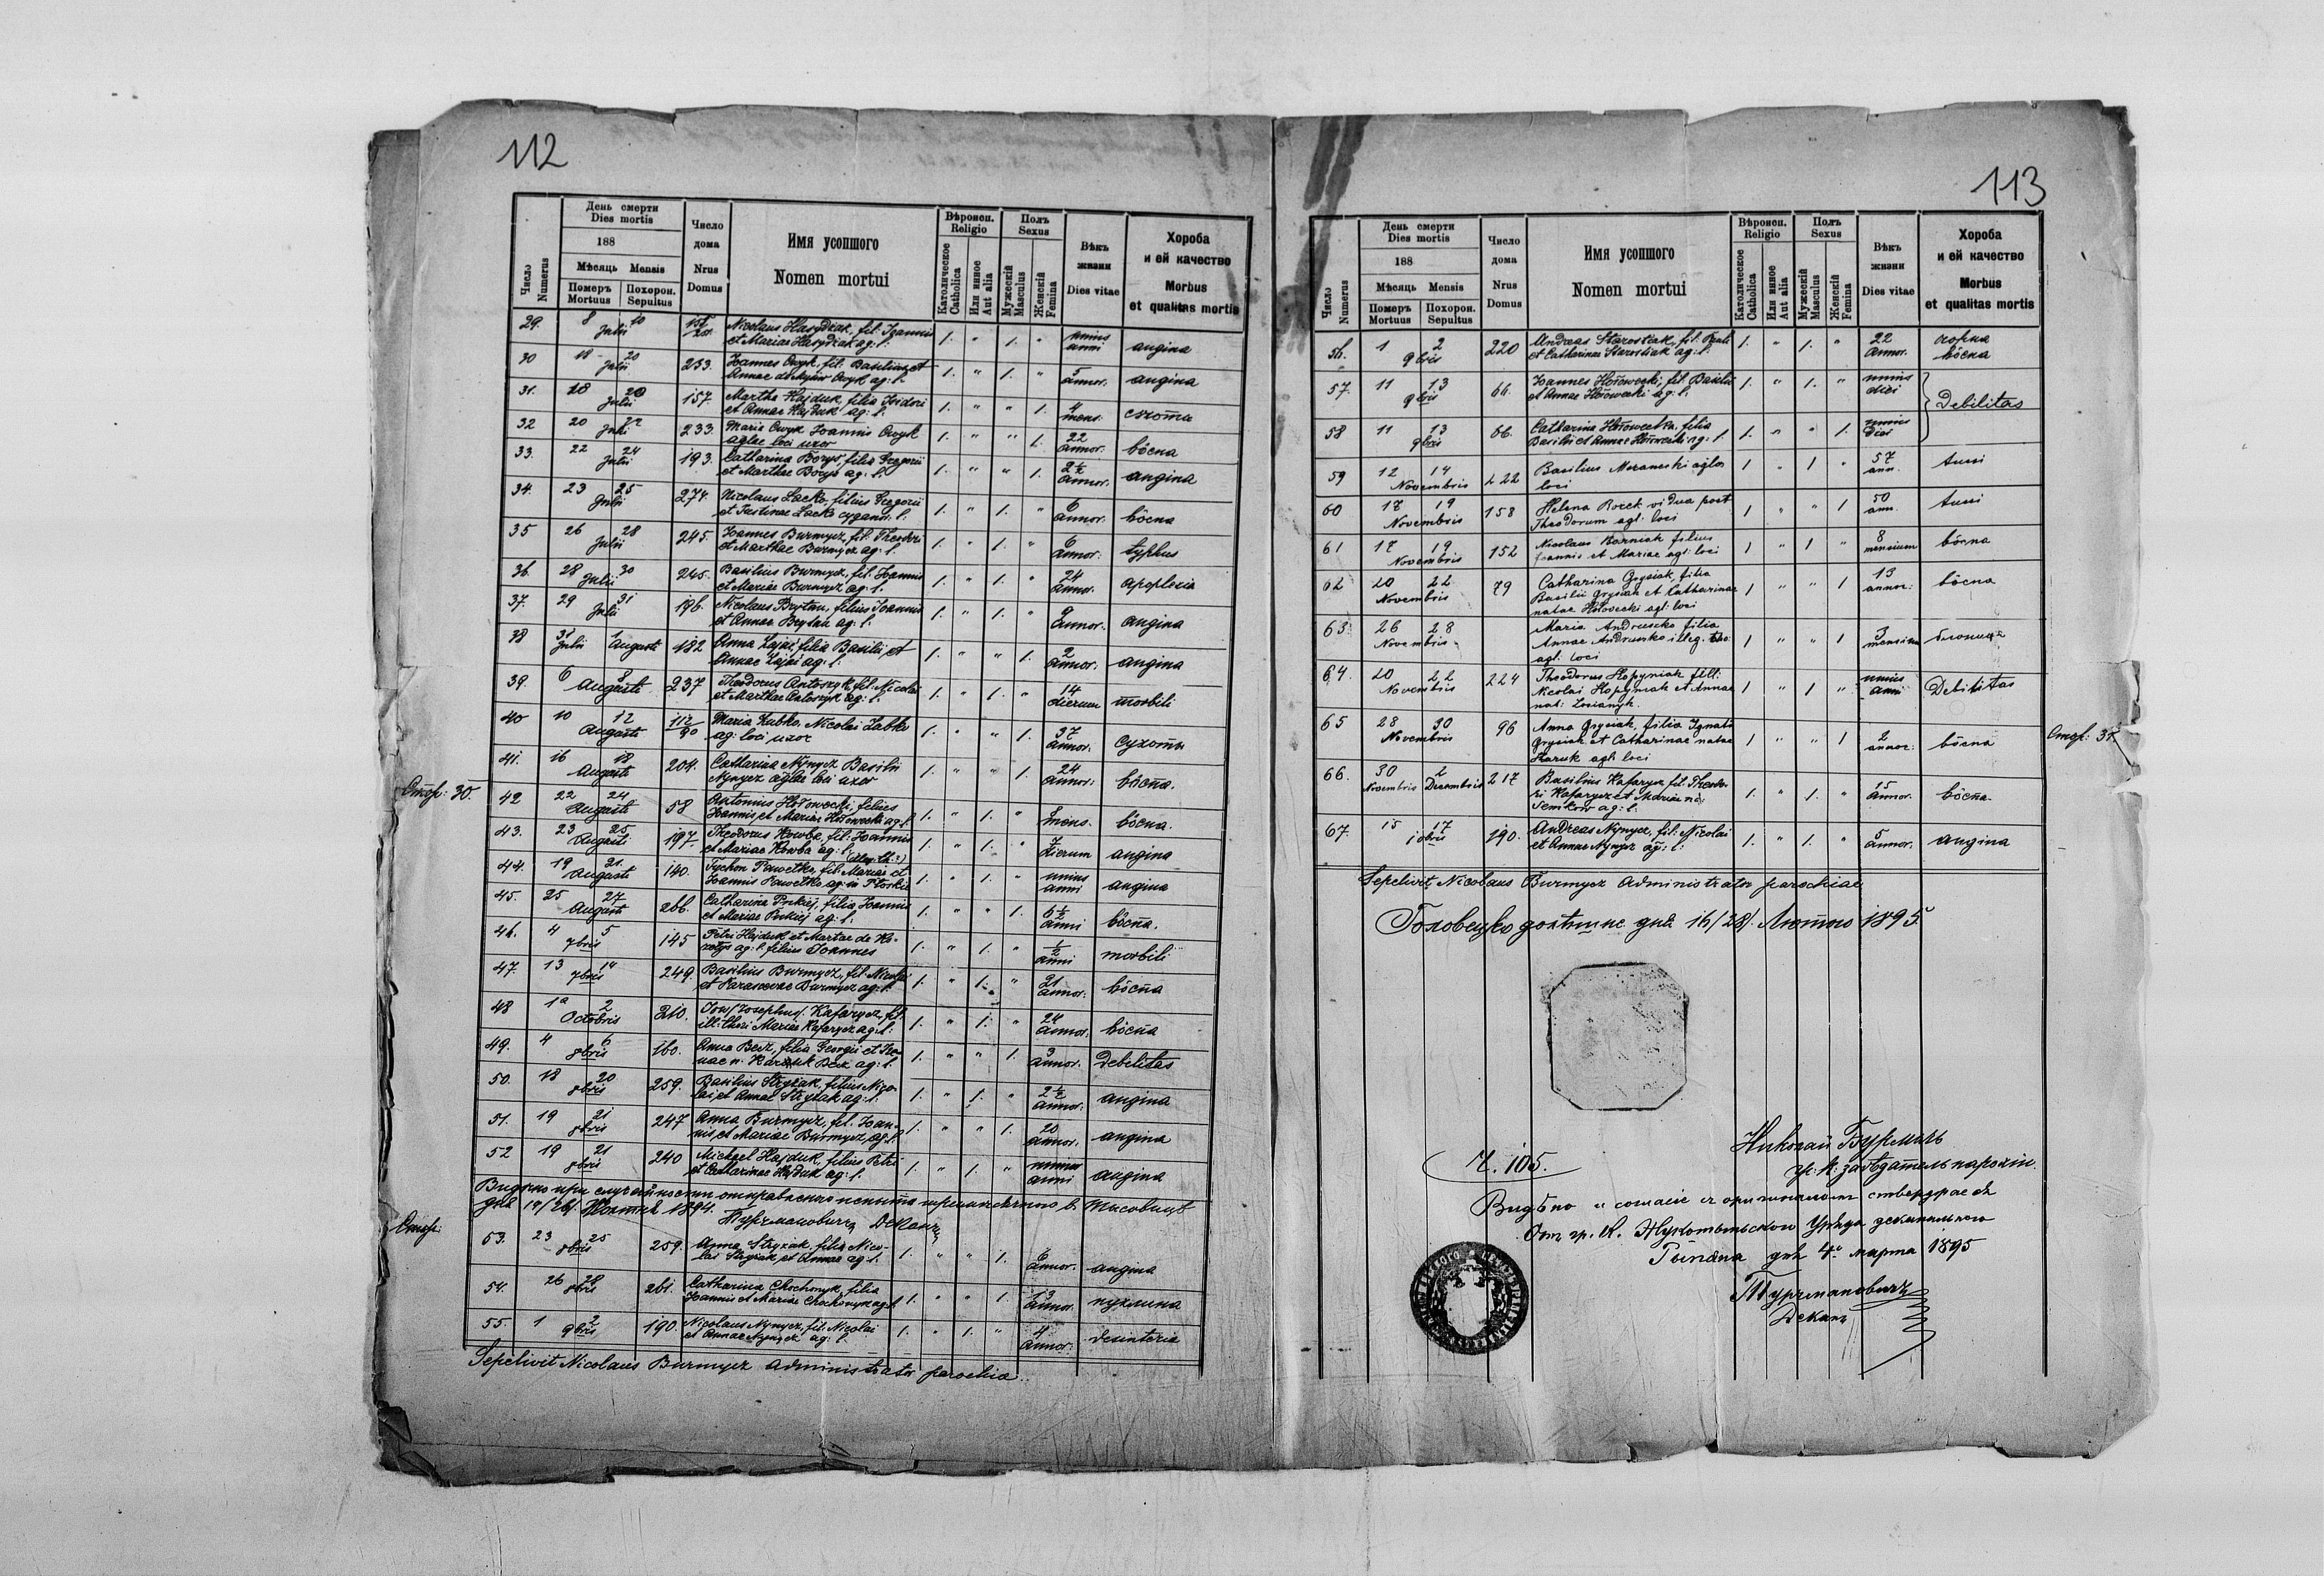 112
День смерти
Dies mortis
188
Мѣсяць Mensis
Число
Numerus
Померъ
Mortuus
Похорон.
Sepultus
Число
дома
Nrus
Domus
Имя усопшого
Nomen mortui
Вѣроисп.
Religio
Католическое
Catholica
Или инное
Aut alia
Полъ
Sexus
Мужескій
Masculus
Женскій
Femina
Вѣкъ
жизни
Dies vitae
Хороба
и ей качество
Morbus
et qualitas mortis
29. 8 10 Nicolaus Hasydżak, fil. Joannis
Julii et Mariae Hasydżak ag: l. 1. " 1. " unius anni angina
30 18 20 233. Joannes Cwyk, fil. Basilii et
Julii Annae Cwyk ag: l. 1. " 1. " 5 annor. angina
31. 18 20 157. Martha Hajduk, filia Isidori
Julii et Annae Hajduk ag: l. 1. " " 1. mens.
32 20 22 233. Maria Cwyk Joannis Cwyk
Julii aglae loci uxor 1. " " 1. 22 annor. вôспа
33. 22 24 193. Catharina Borys, filia Gregorii
Julii et Marthae Borys ag: l. 1. " " 1. 2½ annor. angina
34. 23 25 274. Nicolaus Lacko, filius Gregorii
Julii et Justinae Lacko cyganor. l. 1. " 1. " 6 annor. вôспа
35 26 28 245. Joannes Burmycz, fil. Theodori
Julii et Marthae Burmycz ag: l. 1. " 1. " 6 annor: typhus
36. 28 30 245. Basilius Burmycz, fil. Joannis
Julii et Mariae Burmycz ag: l. 1. " 1. " 24 annor. apoplexia
37. 29 31 196. Nicolaus Brytan, filius Joannis
Julii et Annae Brytan ag: l. 1. " 1. " 9 annor. angina
38 31 Julii 1 Augusti 182 Anna Zajać, filia Basilii et
Annae Zajać ag: l. 1. " " 1. 2 annor: angina
39. 6 8 237 Theodorus Antoszyk, fil. Nicolai
Augusti et Marthae Antoszyk ag: l. 1. " 1. " 14 dierum morbili
40 10 12 112/90 Maria Żubko, Nicolai Żubko
Augusti ag: loci uxor 1. " " 1. 37 annor. сухоты
41. 16 18 204. Catharina Nynycz Basilii
Augusti Nynycz aglae loci uxor 1. " " 1. 24 annor: вôспа.
Стор: 30.
42 22 24 58 Antonius Hołowecki, filius
Augusti Joannis et Mariae Hołowecki ag: l. 1. " 1. " mens. вôспа.
43. 23 25 197. Theodorus Kowba, fil: Joannis
Augusti et Mariae Kowba ag: l. 1. " 1. " 7 dierum angina
44. 19 21 140. Tychon Pawełko, fil. Mariae et
Augusti Joannis Pawełko ag: in 1. " 1. " unius anni angina
45. 25 27 266. Catharina filia Joannis
Augusti et Mariae ag: l. 1. " " 1. 6½ anni вôспа.
46. 4 5 145 Petri Hajduk et Martae de
7bris ag: l. filius Joannes 1. " 1. " ½ anni morbili
47. 13 14 249. Basilius Burmycz, fil. Nicolai
7bris et Parascevae Burmycz ag: l. 1. " 1. " 21 annor: вôспа
48 1a 2 210. Josephus Kafarycz, fil.
Octobris Mariae Kafarycz ag: l. 1. " 1. " 24 annor: вôспа
49. 4 6 160. Anna Becz, filia Georgii et
8bris Becz ag: l. 1. " " 1. 3 annor. Debilitas
50. 18 20 259. Basilius Stryżak, filius Nico-
8bris lai et Annae Stryżak ag: l. 1. " 1. " 2½ annor: angina
51. 19 21 247 Anna Burmycz, fil. Joan-
8bris nis et Mariae Burmycz, ag: l. 1. " " 1. 20 annor. angina
52 19 21 240 Michael Hajduk, filius Petri
8bris et Catharinae Hajduk ag: l. 1. " 1. " unius anni angina
Видѣно при случайности отправленого
дня 1894.
Турчмановичъ Деканъ
Стор:
53. 23 25 259. Anna Stryżak, filia Nico-
8bris lai Stryżak et Annae ag: l. 1. " " 1. 6 annor. angina
54. 26 28 261. Catharina Chochonyk, filia
8bris Joannis et Mariae Chochonyk ag: l. 1. " " 1. 13 annor. пухлина
55. 1 2 190. Nicolaus Nynycz, fil. Nicolai
9bris et Annae Nynycz ag: l. 1. " 1. " 4 annor: desinteria
Sepelivit Nicolaus Burmycz Administrator parochiae.
113
День смерти
Dies mortis
188
Мѣсяць Mensis
Число
Numerus
Померъ
Mortuus
Похорон.
Sepultus
Число
дома
Nrus
Domus
Имя усопшого
Nomen mortui
Вѣроисп.
Religio
Католическое
Catholica
Или инное
Aut alia
Полъ
Sexus
Мужескій
Masculus
Женскій
Femina
Вѣкъ
жизни
Dies vitae
Хороба
и ей качество
Morbus
et qualitas mortis
56. 1 2 220 Andreas Starostiak, fil. Pauli
9bris et Catharinae Starostiak ag: l. 1. " 1. " 22 annor. чорна вôспа
57. 11 13 66. Joannes Hołowecki, fil. Basilii
9bris et Annae Hołowecki ag: l. 1. " 1. " unius diei Debilitas
58 11 13 66. Catharina Hołowecka, filia
9bris Basilii et Annae Hołowecki ag. l. 1. " " 1. unius diei
59 12 14 222 Basilius Moranecki aglor
Novembris loci 1 " 1 " 57 ann. tussi
60 17 19 158 Helena Rozek vidua post
Novembris Theodorum agl. loci 1 " " 1 50 ann. tussi
61 17 19 152 Nicolaus Borniak filius
Novembris Joannis et Mariae agl: loci 1 " 1 " 8 mensium вôспа
62 20 22 79 Catharina Grysiak, filia
Novembris Basilii Grysiak et Catharinae
natae Hołovecki agl: loci 1 " " 1 13 annor: вôспа
63. 26 28 Maria Andruszko filia
Novembris Annae Andruszko illeg.
agl. loci 1 " " 1 3 mensium
64. 20 22 224 Theodorus Hopyniak fil:
Novembris Nicolai Hopyniak et Annae
nat: Losianyk. 1 " 1 " unius anni Debilitas
65 28 30 96 Anna Grysiak, filia Ignati
Novembris Grysiak et Catharinae natae
Haruk agl: loci 1 " " 1 2 annor: вôспа
Стор: 31.
66. 30 Novembris 2 Decembris 217 Basilius Kafarycz, fil. Theodo-
ri Kafarycz et Mariae na
Semkow ag: l. 1. " 1. " 15 annor. вôспа.
67. 15 17 190. Andreas Nynycz, fil. Nicolai
10bris et Annae Nynycz ag: l. 1. " 1. " 5 annor. angina
Sepelivit Nicolaus Burmycz Administrator parochiae
Головецко долѣшне дня 16/28/. Лютого 1895
Николай Бурмичъ
гр: к: завѣдатель парохіи.
Ч. 105.
Видѣно и согласіе съ оригиналомъ стверджаесь
Отъ гр. к. Жукотыньского Уряда деканального
дня 4о марта 1895
Турчмановичъ
Деканъ